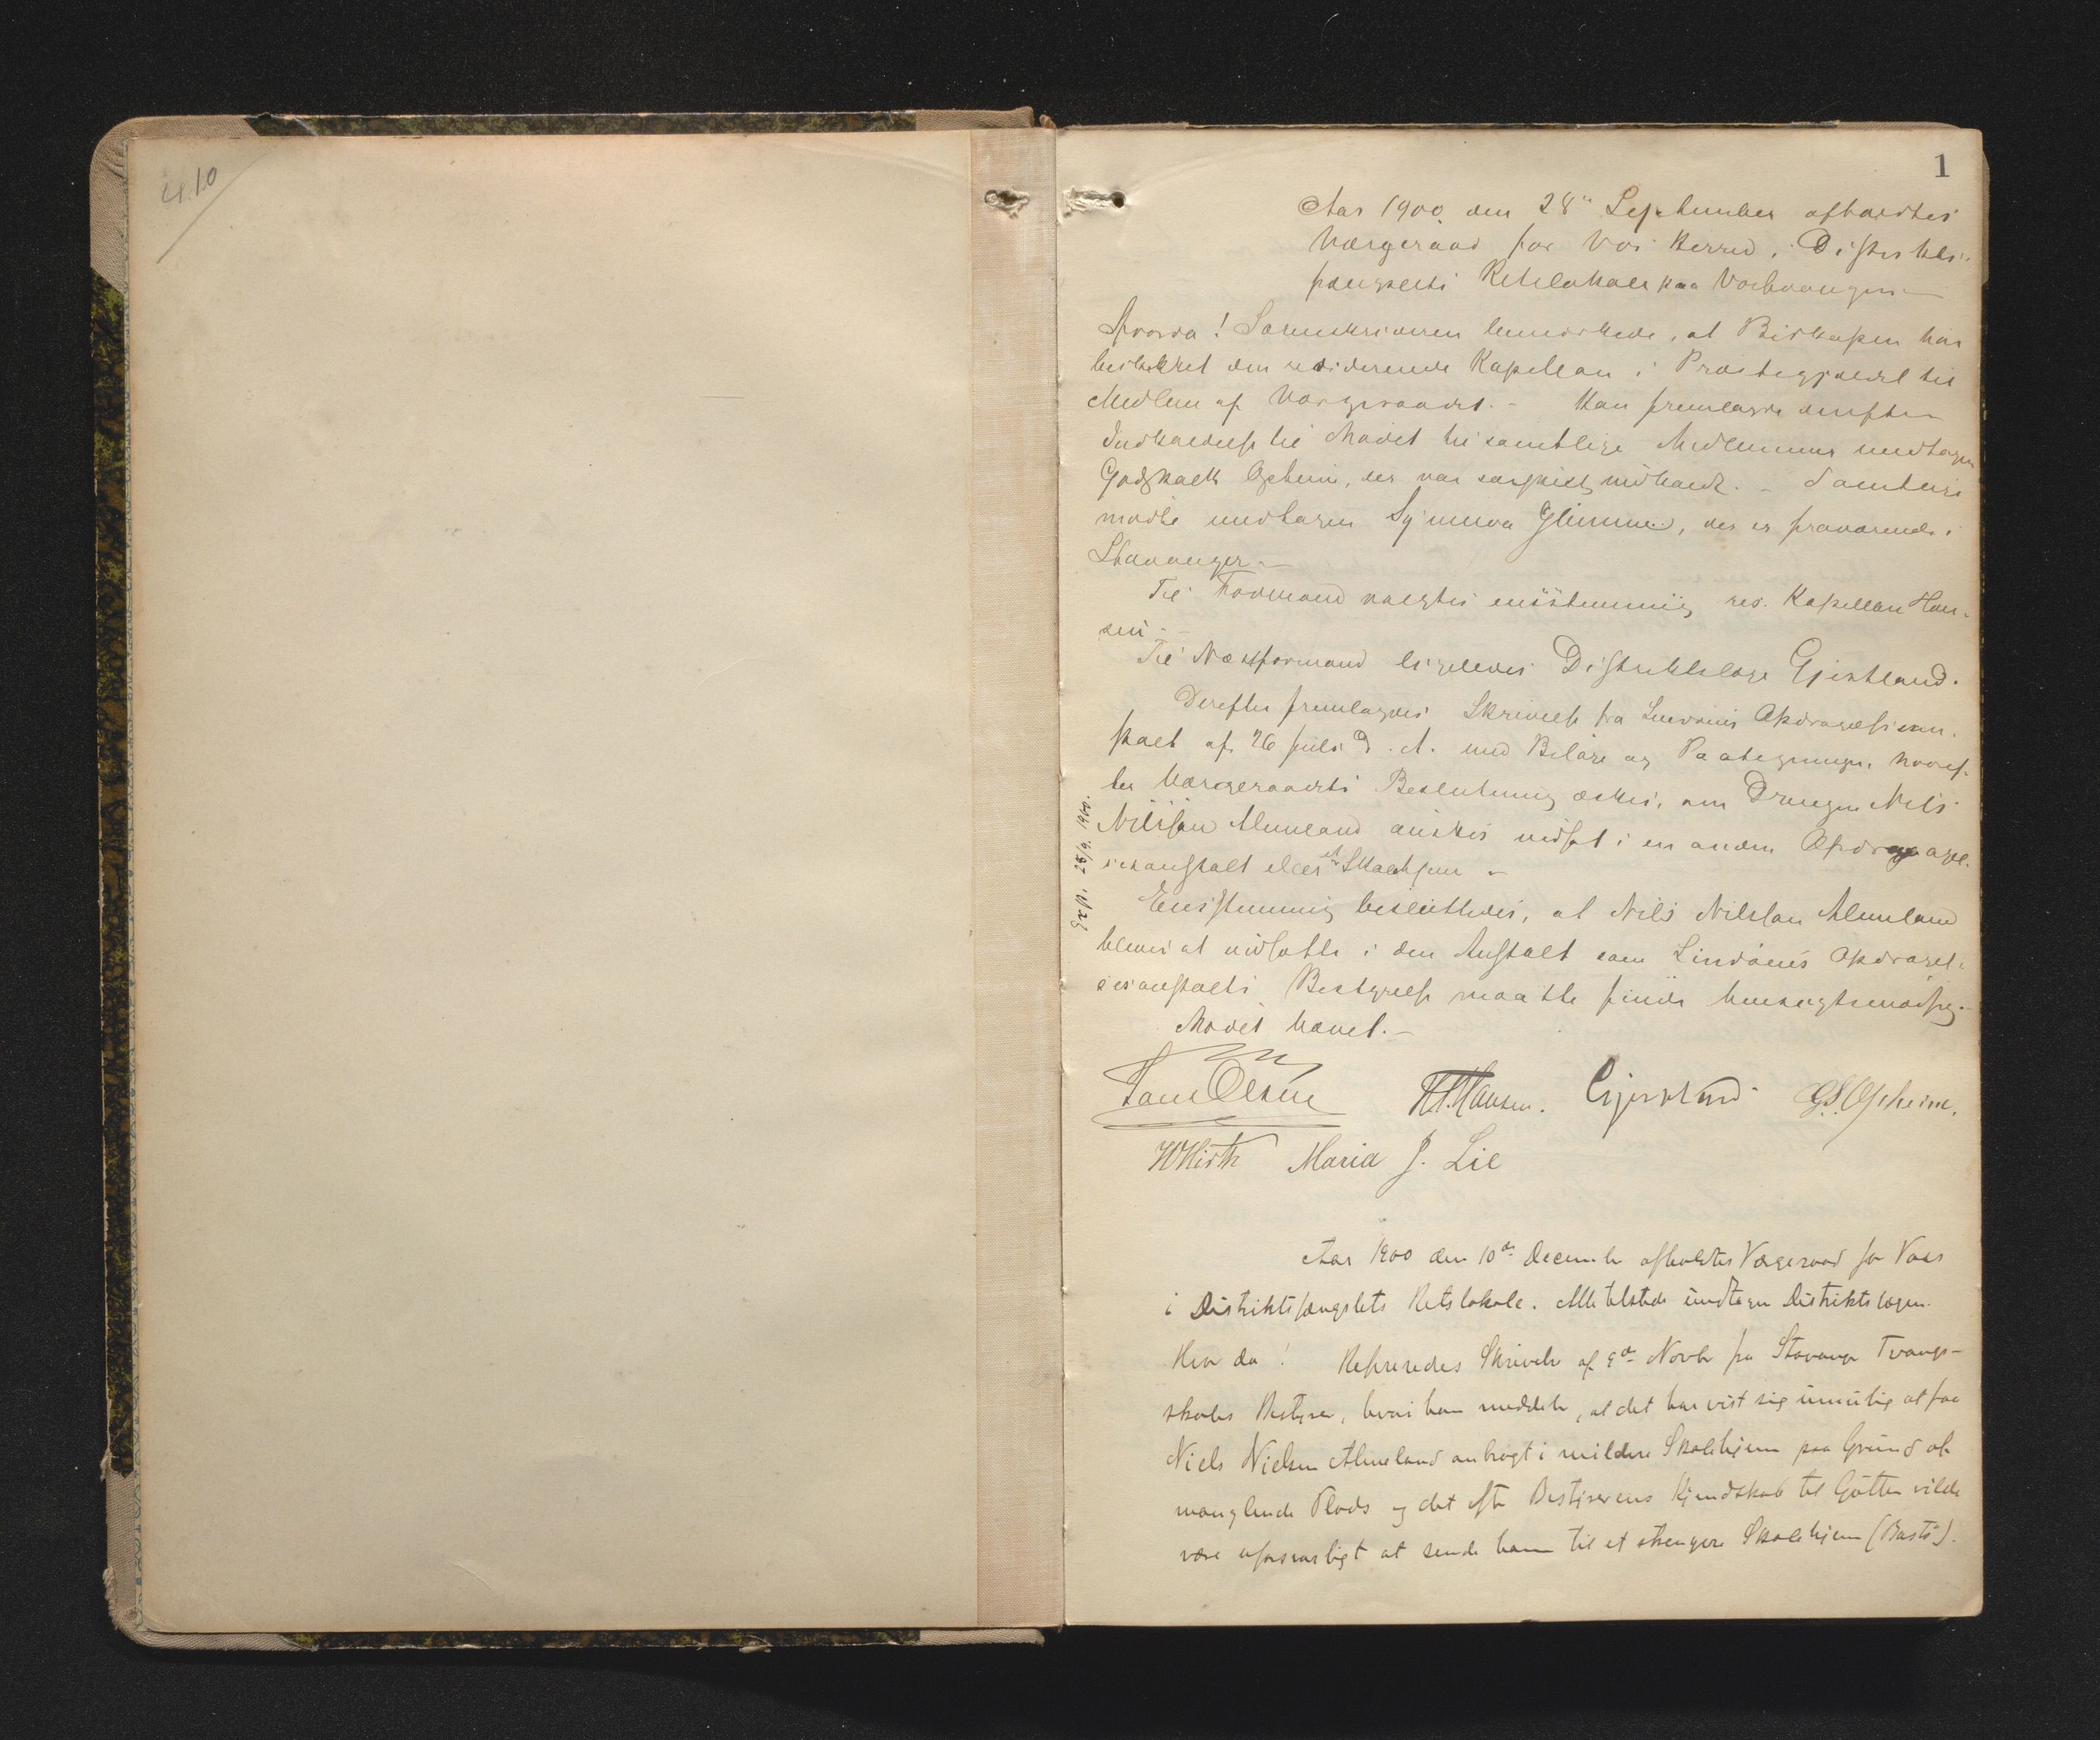 4.10
1
Aar 1900 den 28de September afholdtes
Værgeraad for Vos Herred i Distrikts-
fængslets Retslokale paa Vossevangen.
Hvorda! Sorenskriveren bemærkede, at Biskopen har
beskikket den residerende Kapellan i Præstegjældet til
Medlem af Værgeraadet. - Han fremlagde derefter
Indkaldelse til Mødet til samtlige Medlemmer undtagen
Opheim, der var indkaldt. - Samtlige
mødte undtagen Synneva Glimme, der er fraværende i
Stavanger. -
Til Formand valgtes enstemmig res. Kapellan Han-
sen. -
Til Næstformand ligeledes Distriktslæge Gjerstland.
Derefter fremlagdes Skrivelse fra Lindøens Opdragelsesan-
stalt af 26 Juli d. A. med Bilage og Paategninger, hvoref-
ter Værgeraadets Beslutning æskes, om Drengen Nils
Nilssen Almeland ønskes indsat i en anden Opdragel-
sesanstalt eller et Skolehjem -
Enstemmig besluttedes, at Nils Nilssen Almeland
bliver at indsætte i den Anstalt som Lindøens Opdragel-
sesanstalts Bestyrelse maatte finde hensigtsmæssig. -
Mødet hævet. -
Exp. 28/9. 1900.
H. Hansen. Gjerstland G.S. Opheim.
Maria J. Lie
Aar 1900 den 10de December afholdtes Værgeraad for Voss
i Distriktsfængslets Retslokale. Alle tilstede undtagen Distriktslægen.
Hvor da! Refereredes Skrivelse af 9de Novbr fra Stavanger Tvangs-
skoles Bestyrer, hvori han meddeler, at det har vist sig umulig at faa
Niels Nielsen Almeland anbragt i mildere Skolehjem paa Grund af
manglende Plads og det efter Bestyrerens Kjendskab til Gutten vilde
være uforsvarligt at sende ham til et strengere Skolehjem (Bastø).